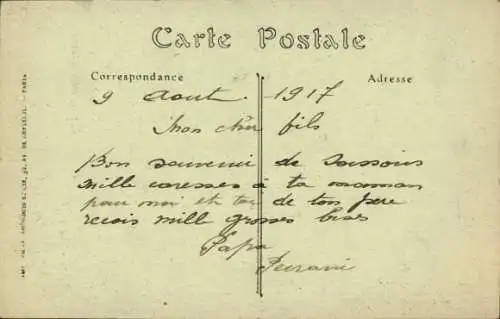 Carte Postale
Correspondance
Adresse
9 Aout. 1917
Mon cher fils
Bon souvenir de Soissons
mille caresses à ta maman
pour moi et toi de ton père
recois mille grosses bises
Papa